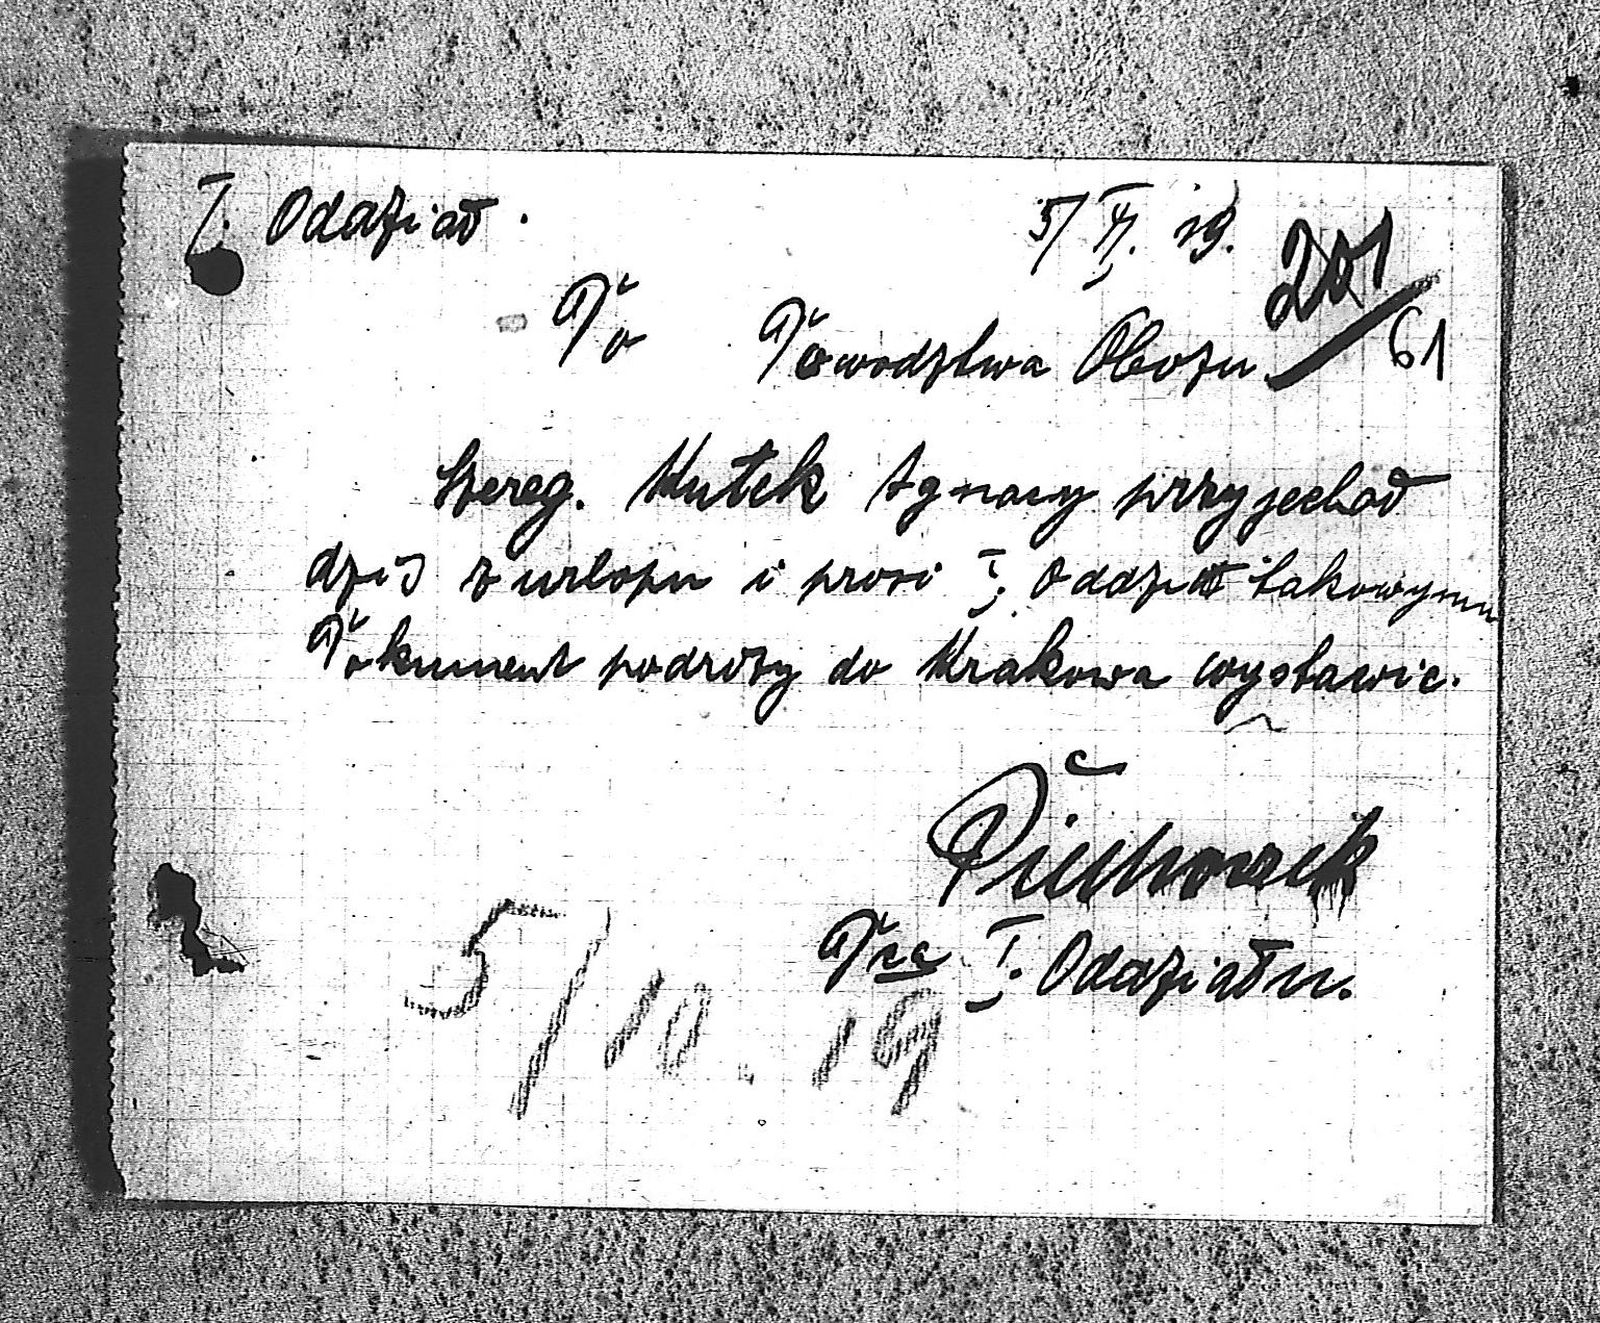 I. Oddział. 5/XI. 19. 201/61
Do Dowodztwa Obozu
Szereg. Kutek Ignacy przyjechał
dziś z urlopu i prosi I. Oddział takowymu
Dokument podróży do Krakowa wystawic.
Piechaczek
I. Oddziału.
5/10. 19